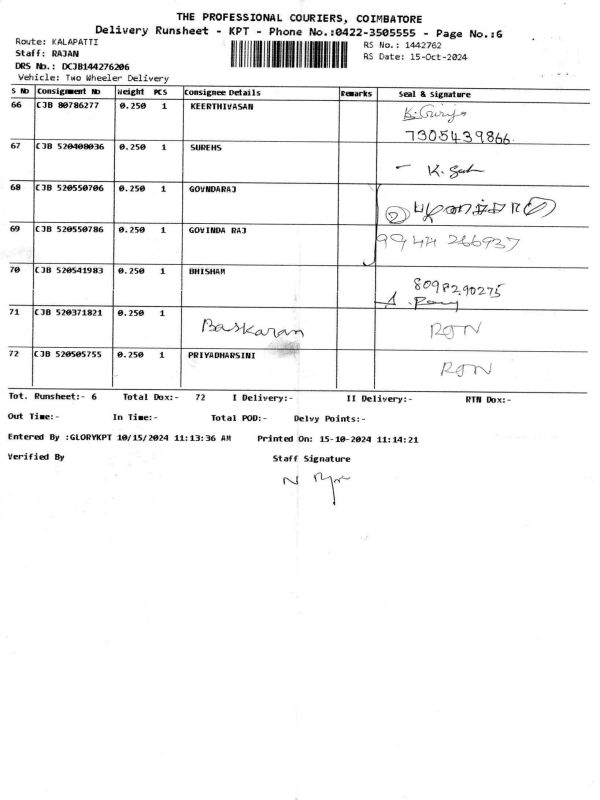 THE PROFESSIONAL COURIERS, COIMBATORE
Delivery Runsheet - KPT - Phone No.:0422-3505555 - Page No.:6
Route: KALAPATTI
RS No.: 1442762
Staff: RAJAN
RS Date: 15-Oct-2024
DRS No.: DCJB144276206
Vehicle: Two Wheeler Delivery
S No Consignment No Weight PCS Consignee Details Remarks Seal & Signature
66 CJB 80786277 0.250 1 KEERTHIVASAN
7305439866
67 CJB 520408036 0.250 1 SUREHS
68 CJB 520550706 0.250 1 GOVNDARAJ
69 CJB 520550786 0.250 1 GOVINDA RAJ 9944 266937
70 CJB 520541983 0.250 1 BHISHAM
8098290275
71 CJB 520371821 0.250 1 Baskaran RTN
72 CJB 520505755 0.250 1 PRIYADHARSINI RTN
Tot. Runsheet:- 6 Total Dox:- 72 I Delivery:- II Delivery:- RTN Dox:-
Out Time:- In Time:- Total POD:- Delvy Points:-
Entered By :GLORYKPT 10/15/2024 11:13:36 AM Printed On: 15-10-2024 11:14:21
Verified By Staff Signature